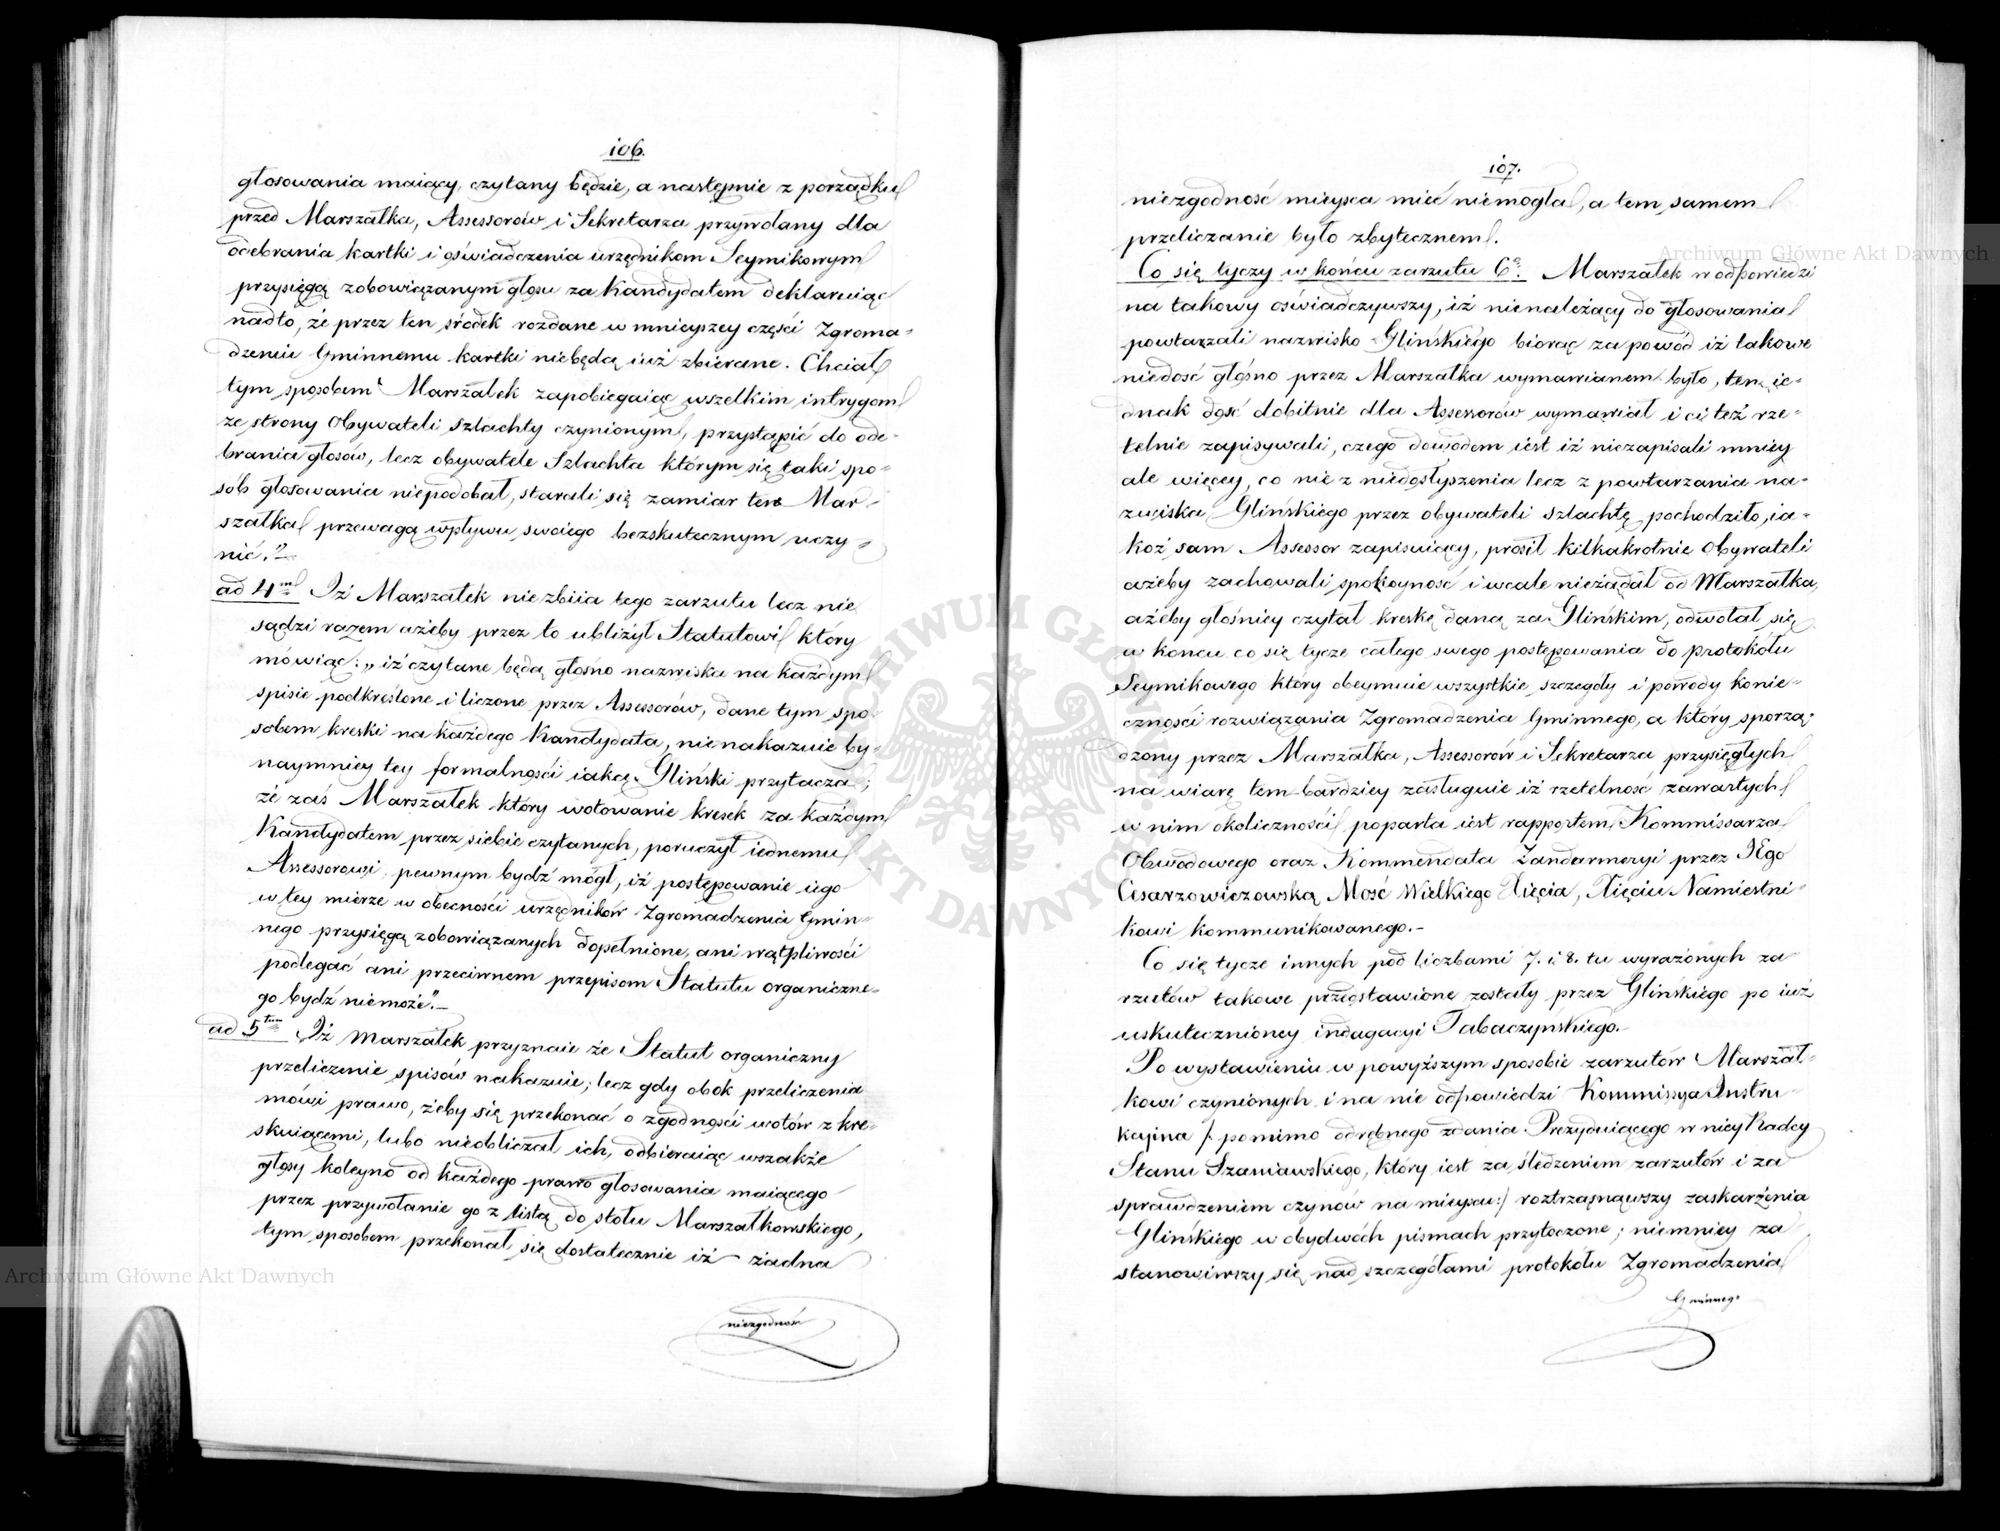 106.
głosowania maiący, czytany będzie, a następnie z porządku
przed Marszałka, Assessorów i Sekretarza przywołany dla
odebrania kartki i oświadczenia urzędnikom Seymikowym
przysięgą zobowiązanym głosu za Kandydatem deklaruiąc
nadto, że przez ten środek rozdane w mnieyszey części Zgroma-
dzeniu Gminnemu kartki niebędą iuż zbierane. Chciał
tym sposobem Marszałek zapobiegaiąc wszelkim intrygom
ze strony Obywateli szlachty czynionym, przystąpić do ode-
brania głosów, lecz obywatele Szlachta którym się taki spo-
sób głosowania niepodobał, starali się zamiar ten Mar-
szałka przewagą wpływu swoiego bezskutecznym uczy-
nić."
ad 4m Iż Marszałek niezbiia tego zarzutu lecz nie
sądzi razem ażeby przez to ubliżył Statutowi który
mówiąc: „iż czytane będą głośno nazwiska na każdym
spisie podkreślone i liczone przez Assessorów, dane tym spo-
sobem kreski na każdego Kandydata, nienakazuie by-
naymniey tey formalności iaką Gliński przytacza;
że zaś Marszałek który wotowanie kresek za każdym
Kandydatem przez siebie czytanych, poruczył iednemu
Assessorowi, pewnym bydź mógł, iż postępowanie iego
w tey mierze w obecności urzędników Zgromadzenia Gmin-
nego przysięgą zobowiązanych dopełnione, ani wątpliwości
podlegać ani przeciwnem przepisom Statutu organiczne-
go bydź niemoże".
ad 5tum Iż Marszałek przyznaie że Statut organiczny
przeliczenie spisów nakazuie; lecz gdy obok przeliczenia
mówi prawo, żeby się przekonać o zgodności wotów z kre-
skuiącemi, lubo nieobliczał ich, odbieraiąc wszakże
głosy koleyno od każdego prawo głosowania maiącego
przez przywołanie go z listą do stołu Marszałkowskiego,
tym sposobem przekonał się dostatecznie iż żadna
niezgodność
107.
niezgodność mieysca mieć niemogła, a tem samem
przeliczanie było zbytecznem.
Co się tyczy w końcu zarzutu 6o. Marszałek w odpowiedzi
na takowy oświadczywszy, iż nienależący do głosowania
powtarzali nazwisko Glińskiego biorąc za powód iż takowe
niedość głośno przez Marszałka wymawianem było, ten ie-
dnak dość dobitnie dla Assessorów wymawiał i ci też rze-
telnie zapisywali, czego dowodem iest iż niezapisali mniey
ale więcey, co nie z niedosłyszenia lecz z powtarzania na-
zwiska Glińskiego przez obywateli szlachtę pochodziło, ia-
koż sam Assessor zapisuiący, prosił kilkakrotnie Obywateli
ażeby zachowali spokoyność i wcale nieżądał od Marszałka,
ażeby głośniey czytał kreskę daną za Glińskim, odwołał się
w końcu co się tycze całego swego postępowania do protokółu
Seymikowego który obeymuie wszystkie szczegóły i powody konie-
czności rozwiązania Zgromadzenia Gminnego, a który sporzą-
dzony przez Marszałka, Assessorów i Sekretarza przysięgłych
na wiarę tem bardziey zasługuie iż rzetelność zawartych
w nim okoliczności poparta iest rapportem Kommissarza
Obwodowego oraz Kommendata Żandarmeryi przez JEgo
Cesarzowiczowską Mość Wielkiego Xięcia, Xięciu Namiestni-
kowi kommunikowanego.
Co się tycze innych pod liczbami 7. i 8. tu wyrażonych za
rzutów takowe przedstawione zostały przez Glińskiego po iuż
uskutecznioney indagacyi Tabaczyńskiego.
Po wystawieniu w powyższym sposobie zarzutów Marszał-
kowi czynionych i na nie odpowiedzi Kommissya Instru-
kcyina /: pomimo odrębnego zdania Prezyduiącego w niey Radcy
Stanu Szaniawskiego, który iest za śledzeniem zarzutów i za
sprawdzeniem czynów na mieyscu:/ roztrząsnąwszy zaskarżenia
Glińskiego w obydwóch pismach przytoczone; niemniey za
stanowiwszy się nad szczegółami protokółu Zgromadzenia
Gminnego
Archiwum Główne Akt Dawnych
Archiwum Główne Akt Dawnych
ARCHIWUM GŁÓWNE AKT DAWNYCH